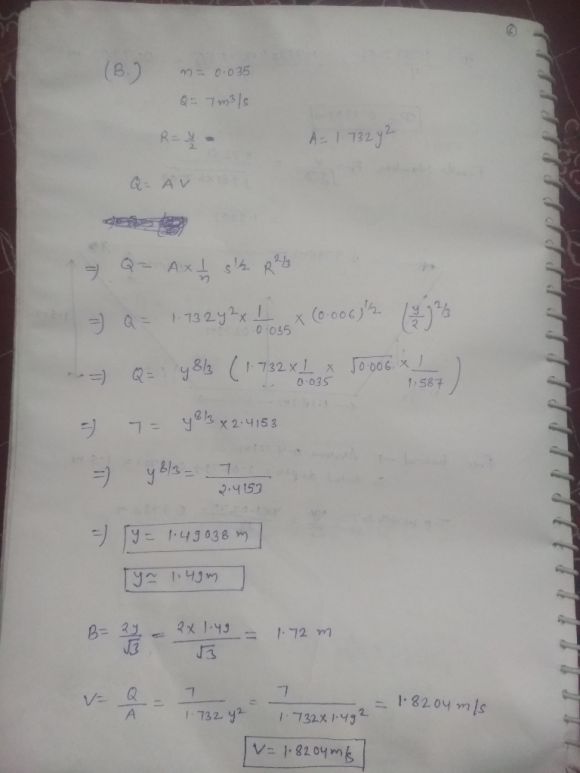 6
(B.) n = 0.035
Q = 7 m³/s
R = y/2 A = 1.732 y²
Q = A V
=) Q = A × 1/n S^1/2 R^2/3
=) Q = 1.732 y² × 1/0.035 × (0.006)^1/2 (y/2)^2/3
=) Q = y^8/3 (1.732 × 1/0.035 × √0.006 × 1/1.587)
=) 7 = y^8/3 × 2.4153
=) y^8/3 = 7/2.4153
=) y = 1.49038 m
y ≃ 1.49 m
B = 2y/√3 = 2 × 1.49/√3 = 1.72 m
V = Q/A = 7/1.732 y² = 7/1.732 × 1.49² = 1.8204 m/s
V = 1.8204 m/s